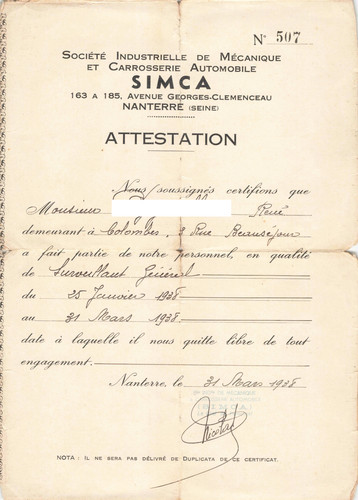 N° 507
SOCIÉTÉ INDUSTRIELLE DE MÉCANIQUE
ET CARROSSERIE AUTOMOBILE
SIMCA
163 A 185, AVENUE GEORGES-CLEMENCEAU
NANTERRE (SEINE)
ATTESTATION
Nous soussignés certifions que
Monsieur René
demeurant à Colombes, 2 Rue Beauséjour
a fait partie de notre personnel, en qualité
de Surveillant Général
du 25 Janvier 1938
au 31 Mars 1938
date à laquelle il nous quitte libre de tout
engagement.
Nanterre, le 31 Mars 1938
NOTA : IL NE SERA PAS DÉLIVRÉ DE DUPLICATA DE CE CERTIFICAT.